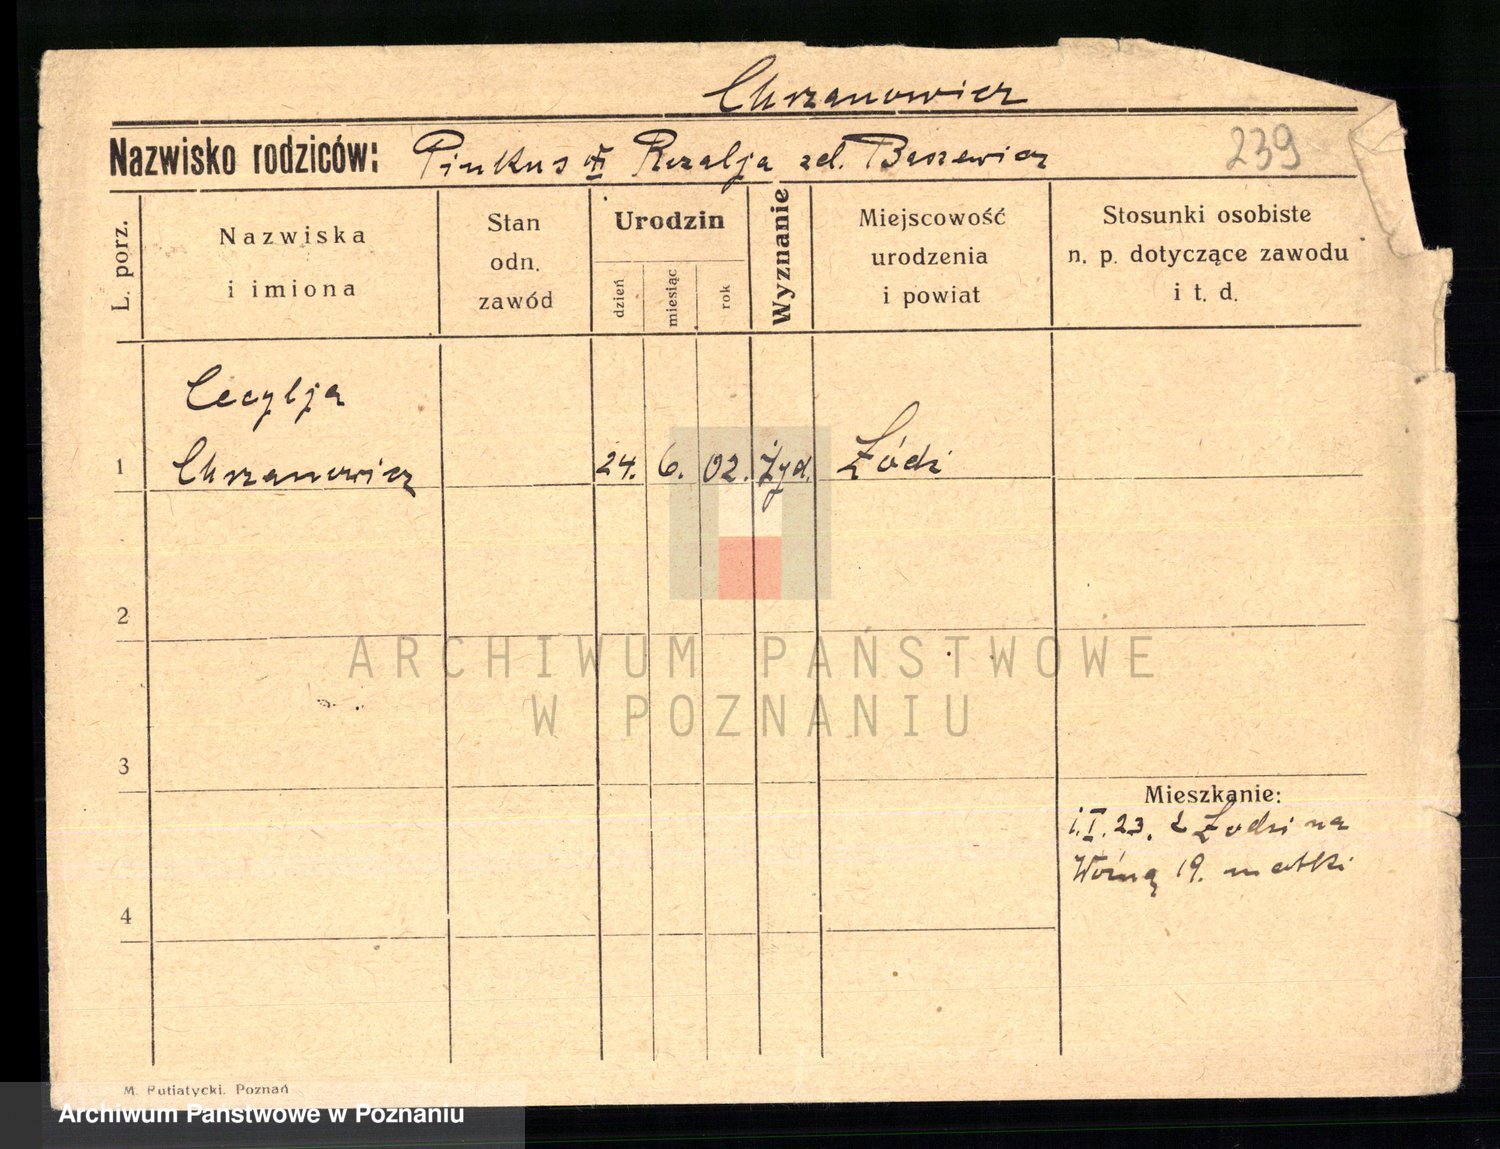 Chrzanowicz
Nazwisko rodziców: Pinkus Rozalja zd. Baszewicz
239
L. porz.
Nazwiska
i imiona
Stan
odn.
zawód
Urodzin
dzień
miesiąc
rok
Wyznanie
Miejscowość
urodzenia
i powiat
Stosunki osobiste
n. p. dotyczące zawodu
i t. d.
1
Cecylja
Chrzanowicz
24. 6. 02. żyd. Łódź
2
ARCHIWUM PAŃSTWOWE
W POZNANIU
3
Mieszkanie:
1.I.23. z Łodzi na
Woźną 19. matki
4
M. Putiatycki. Poznań
Archiwum Państwowe w Poznaniu